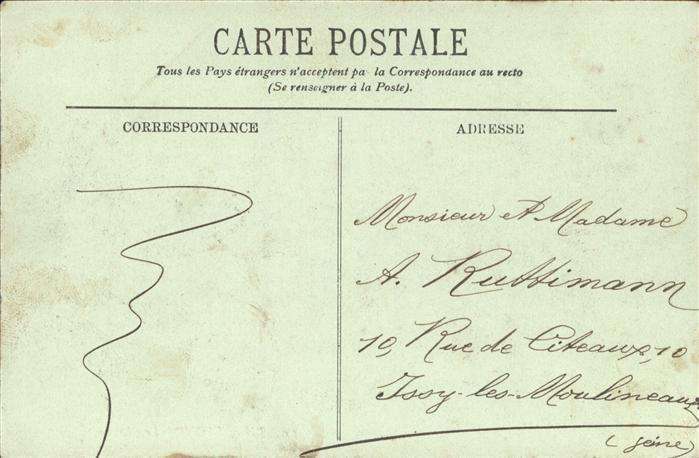 CARTE POSTALE
Tous les Pays étrangers n'acceptent pa la Correspondance au recto
(Se renseigner à la Poste).
CORRESPONDANCE
ADRESSE
Monsieur et Madame
A. Ruttimann
10, Rue de Citeaux, 10
Issy-les-Moulineaux
(Seine)